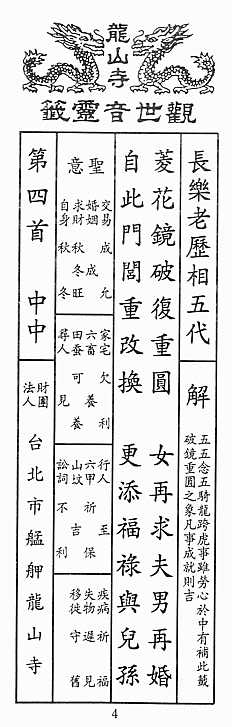 龍山寺
觀世音靈籤
長樂老歷相五代
解
五五念五騎龍跨虎事雖勞心於中有補此籤
破鏡重圓之象凡事成就則吉
菱花鏡破復重圓 女再求夫男再婚
自此門閭重改換 更添福祿與兒孫
聖意
交易 成允
婚姻 成
求財 秋冬旺
自身 秋冬
家宅 欠利
六畜 養
田蠶 可養
尋人 見
行人 至
六甲 祈保
山墳 吉
訟詞 不利
疾病 祈福
失物 遲見
移徙 守舊
第四首 中中
財團法人
台北市艋舺龍山寺
4